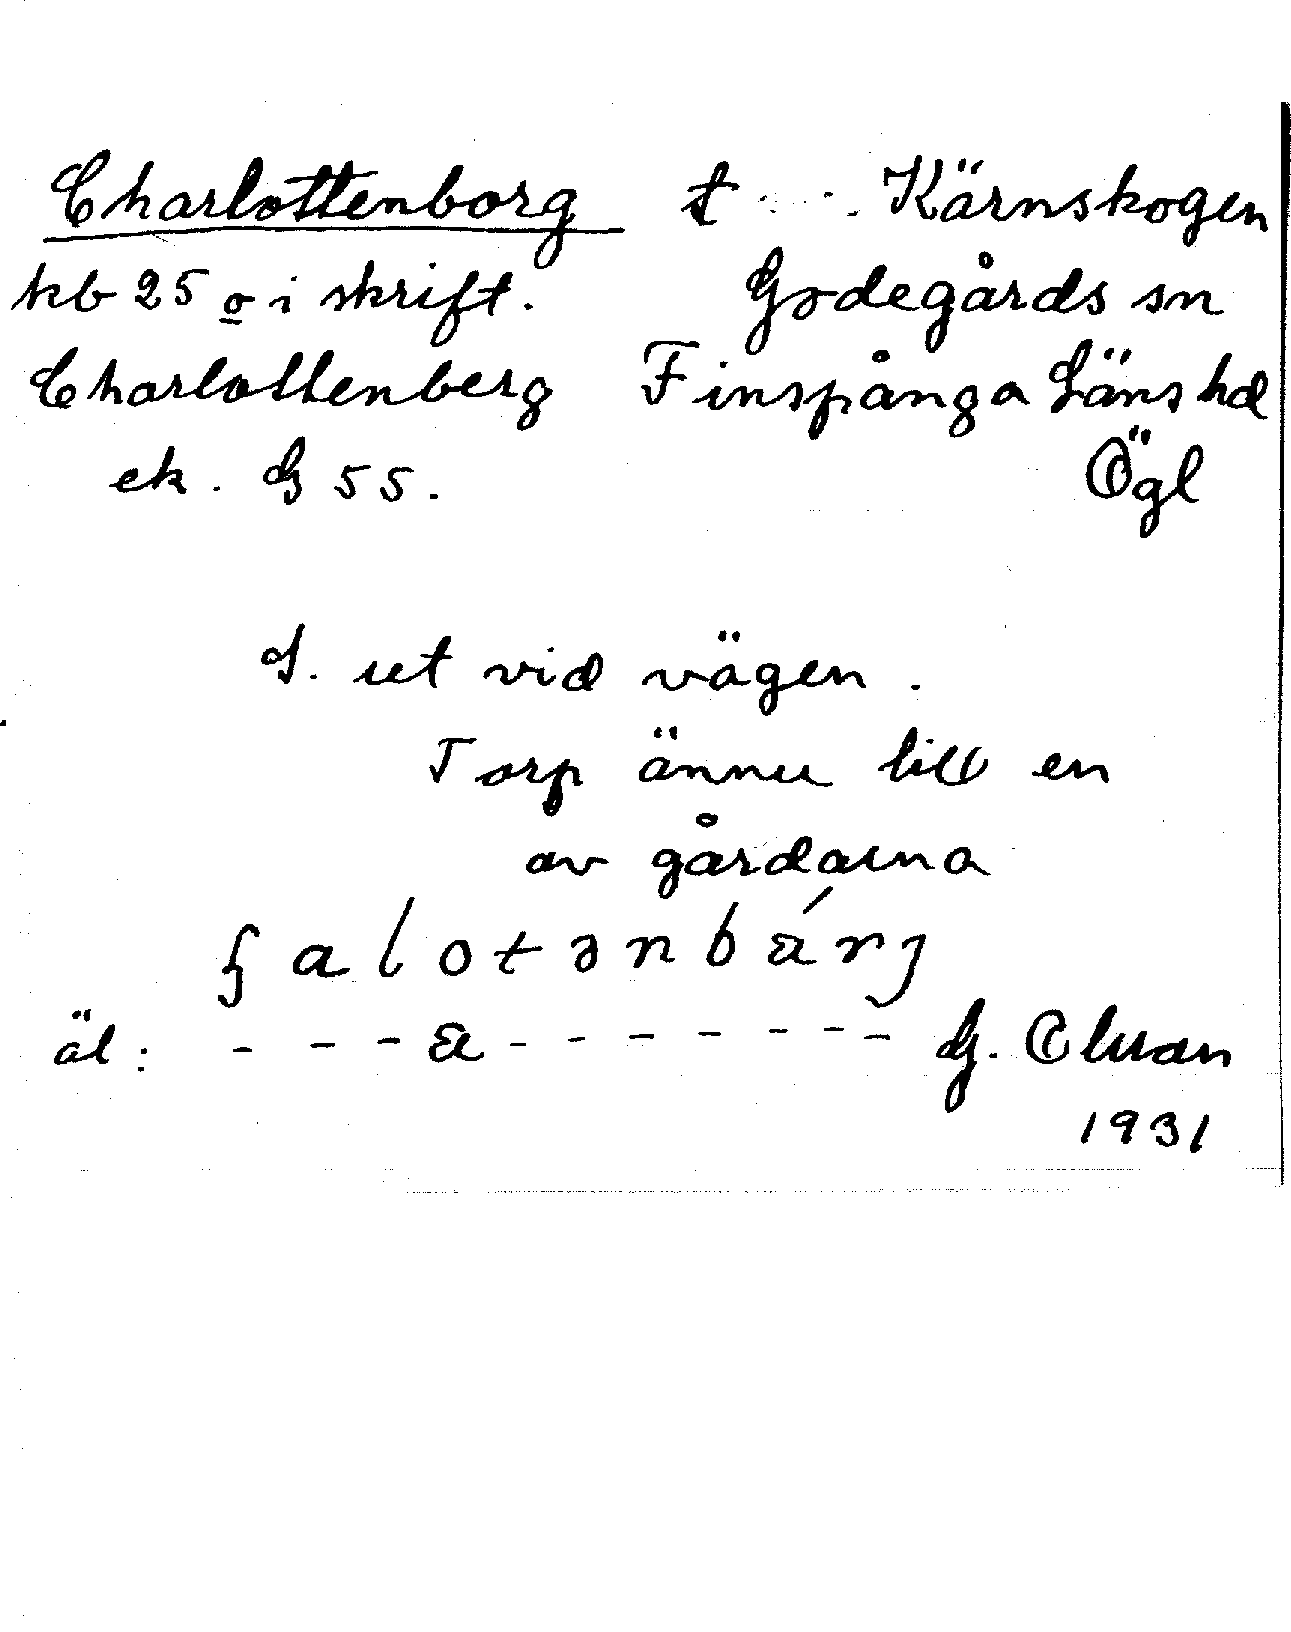 Charlottenborg t ... Kärnskogen
kb 25 o i skrift. Godegårds sn
Charlottenberg Finspånga Läns hd
ek. G 55. Ögl
S. ut vid vägen.
Torp ännu till en
av gårdarna
ʂalotənbárj
äl: - - - a - - - - - - - G. Olsson
1931